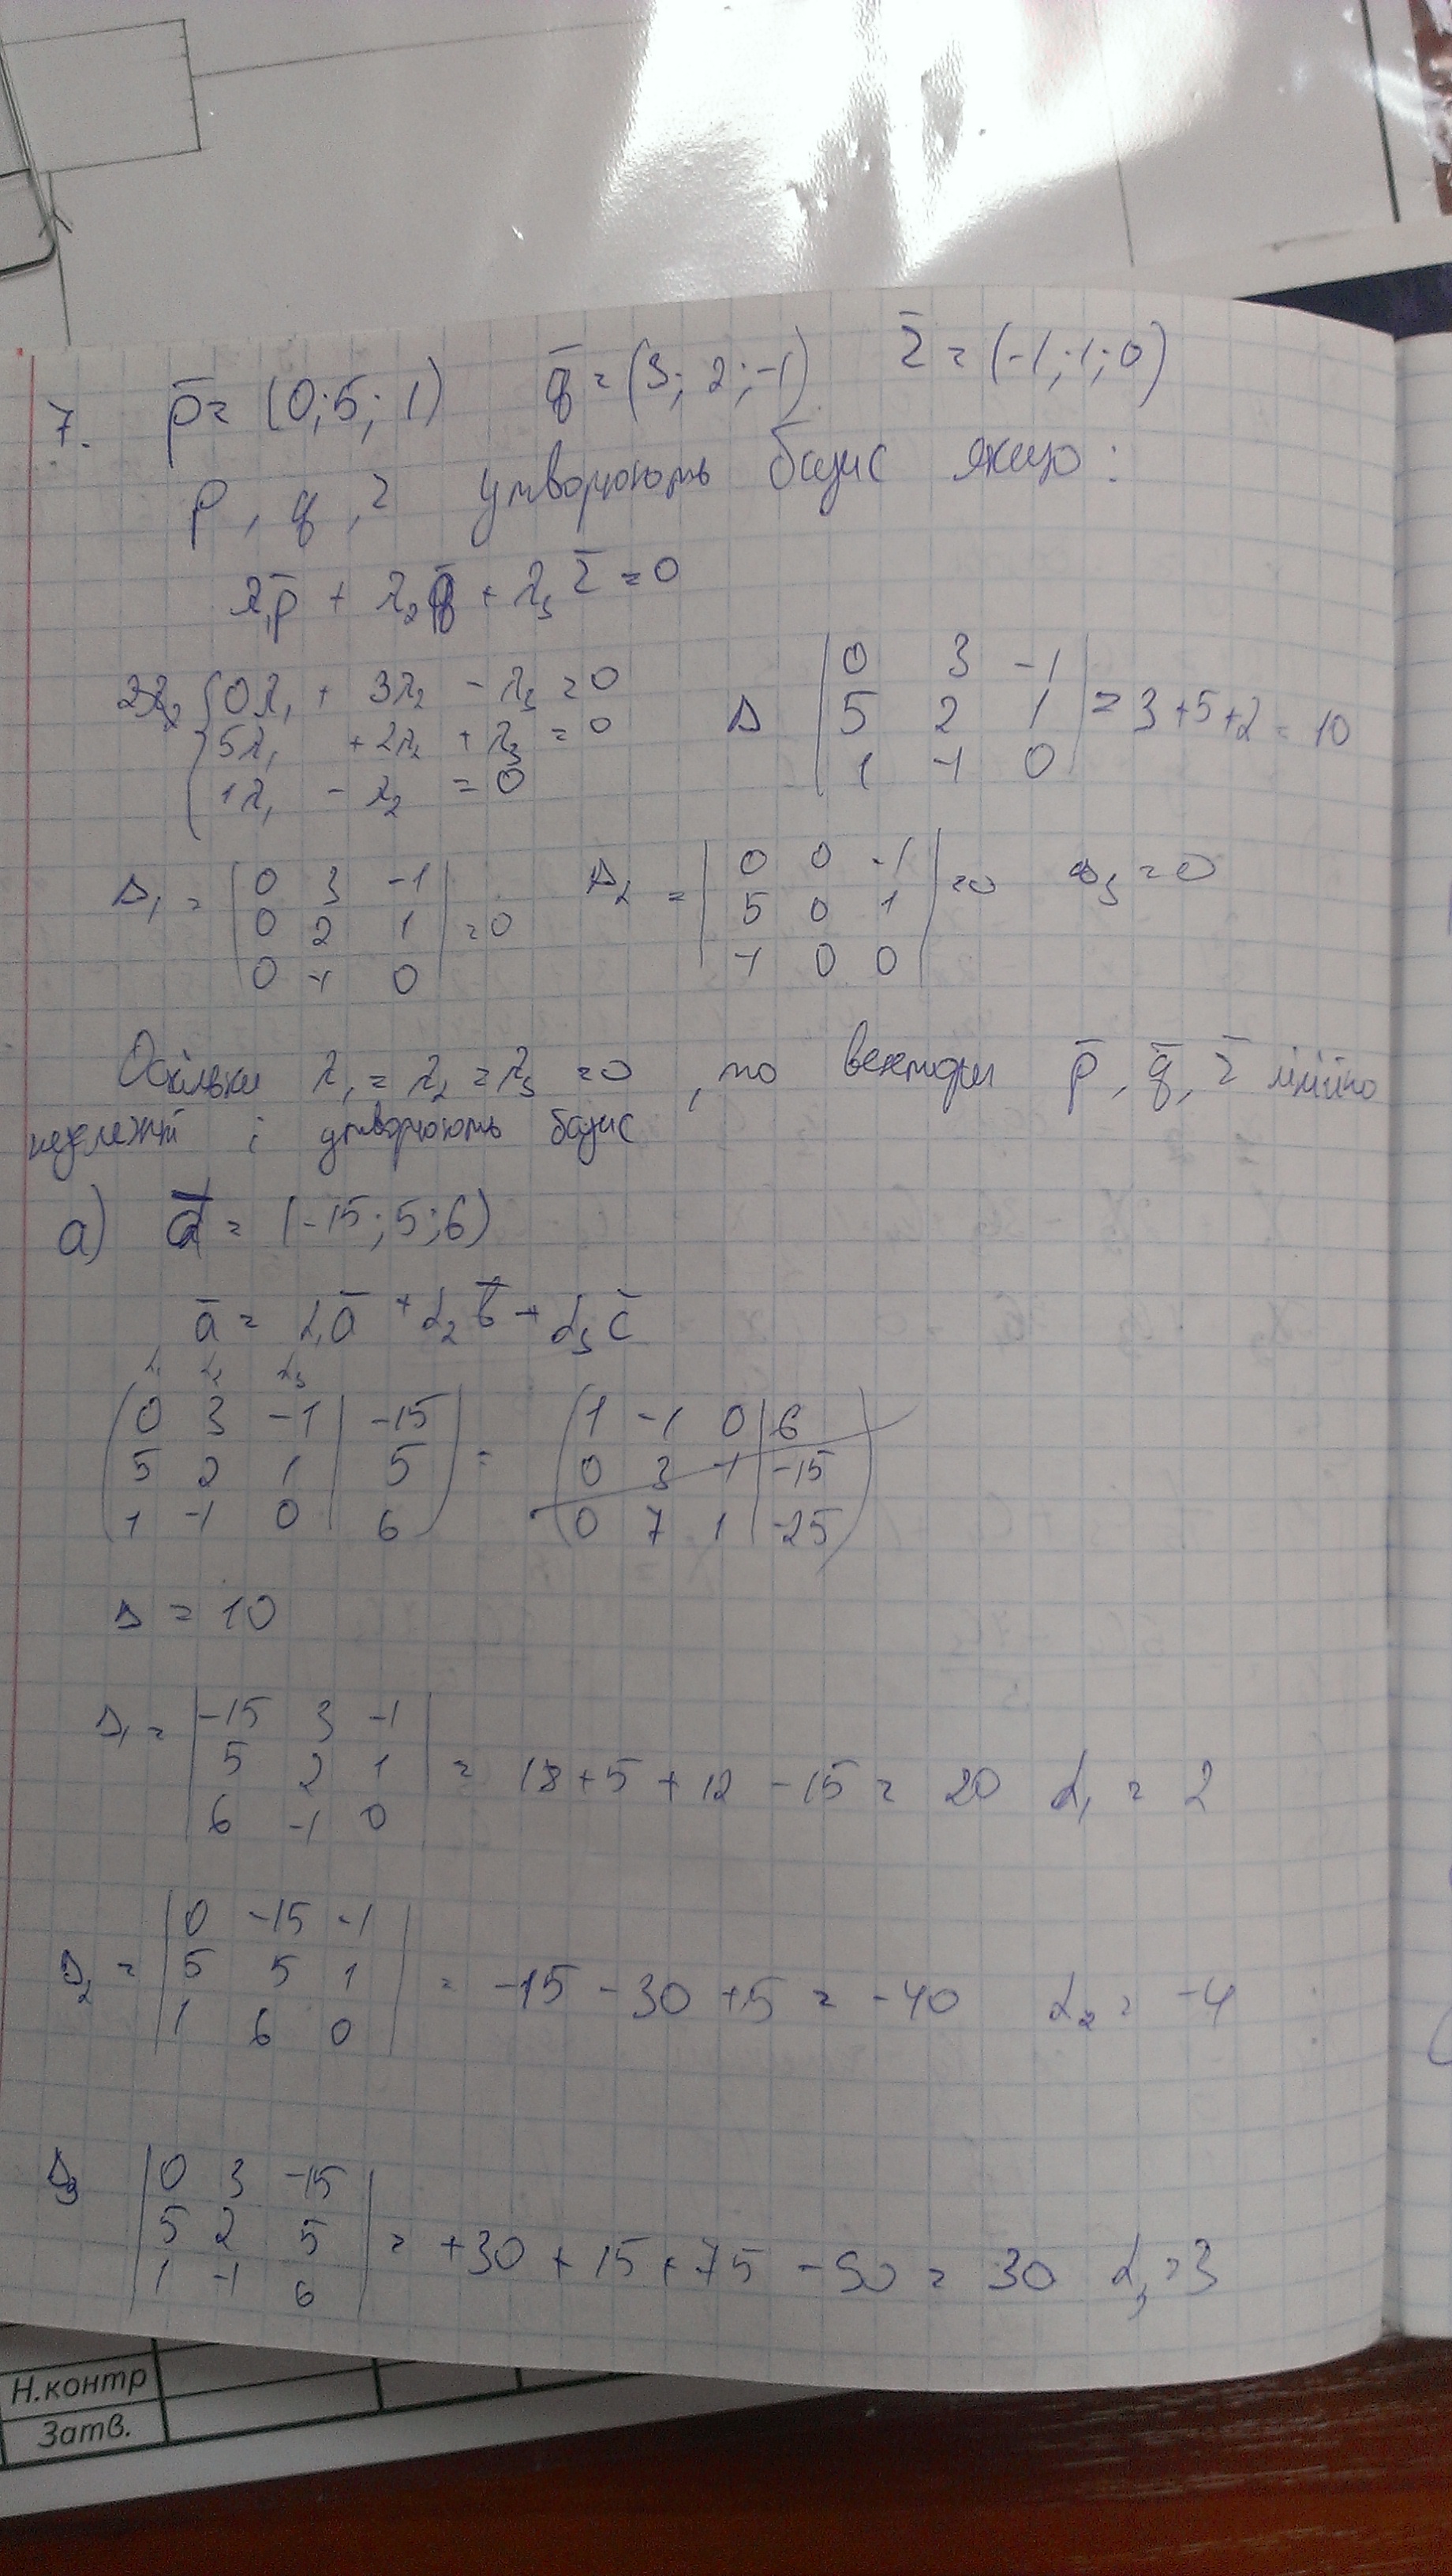 7. p̄ = (0; 5; 1) q̄ = (3; 2; -1) r̄ = (-1; 1; 0)
p, q, r утворюють базис якщо:
λ₁p̄ + λ₂q̄ + λ₃r̄ = 0
0λ₁ + 3λ₂ - λ₃ = 0
5λ₁ + 2λ₂ + λ₃ = 0
1λ₁ - λ₂ = 0
Δ | 0 3 -1 |
| 5 2 1 | = 3 + 5 + 2 = 10
| 1 -1 0 |
Δ₁ = | 0 3 -1 |
| 0 2 1 | = 0
| 0 -1 0 |
Δ₂ = | 0 0 -1 |
| 5 0 1 | = 0 Δ₃ = 0
| -1 0 0 |
Оскільки λ₁ = λ₂ = λ₃ = 0, то вектори p̄, q̄, r̄ лінійно
незалежні і утворюють базис
а) d̄ = (-15; 5; 6)
ā = α₁ā + α₂b̄ + α₃c̄
α₁ α₂ α₃
( 0 3 -1 | -15 ) = ( 1 -1 0 | 6 )
( 5 2 1 | 5 ) ( 0 3 -1 | -15 )
( 1 -1 0 | 6 ) ( 0 7 1 | -25 )
Δ = 10
Δ₁ = | -15 3 -1 |
| 5 2 1 | = 18 + 5 + 12 - 15 = 20 α₁ = 2
| 6 -1 0 |
Δ₂ = | 0 -15 -1 |
| 5 5 1 | = -15 - 30 + 5 = -40 α₂ = -4
| 1 6 0 |
Δ₃ | 0 3 -15 |
| 5 2 5 | = +30 + 15 + 75 - 90 = 30 α₃ = 3
| 1 -1 6 |
Н.контр
Затв.